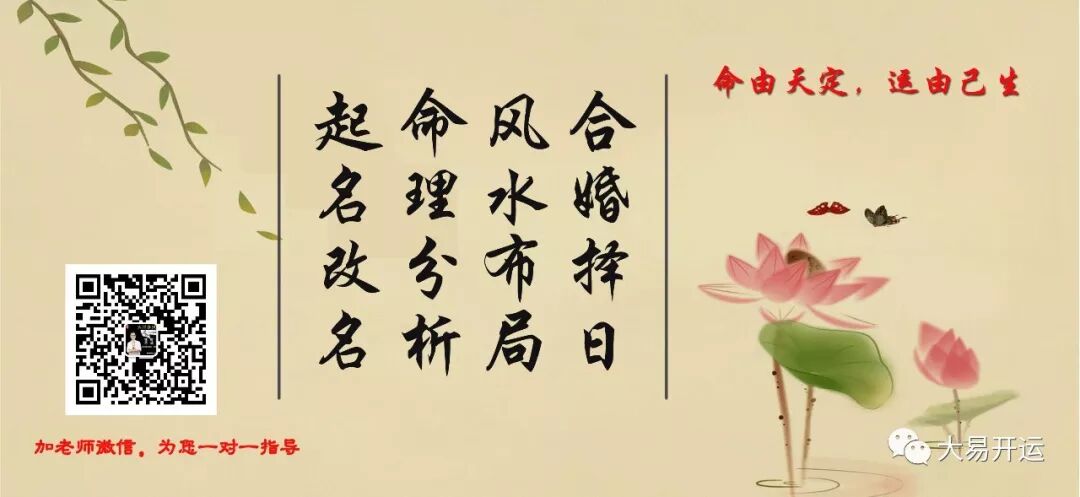 命由天定，运由己生
合婚择日
风水布局
命理分析
起名改名
加老师微信。为您一对一指导
大易开运